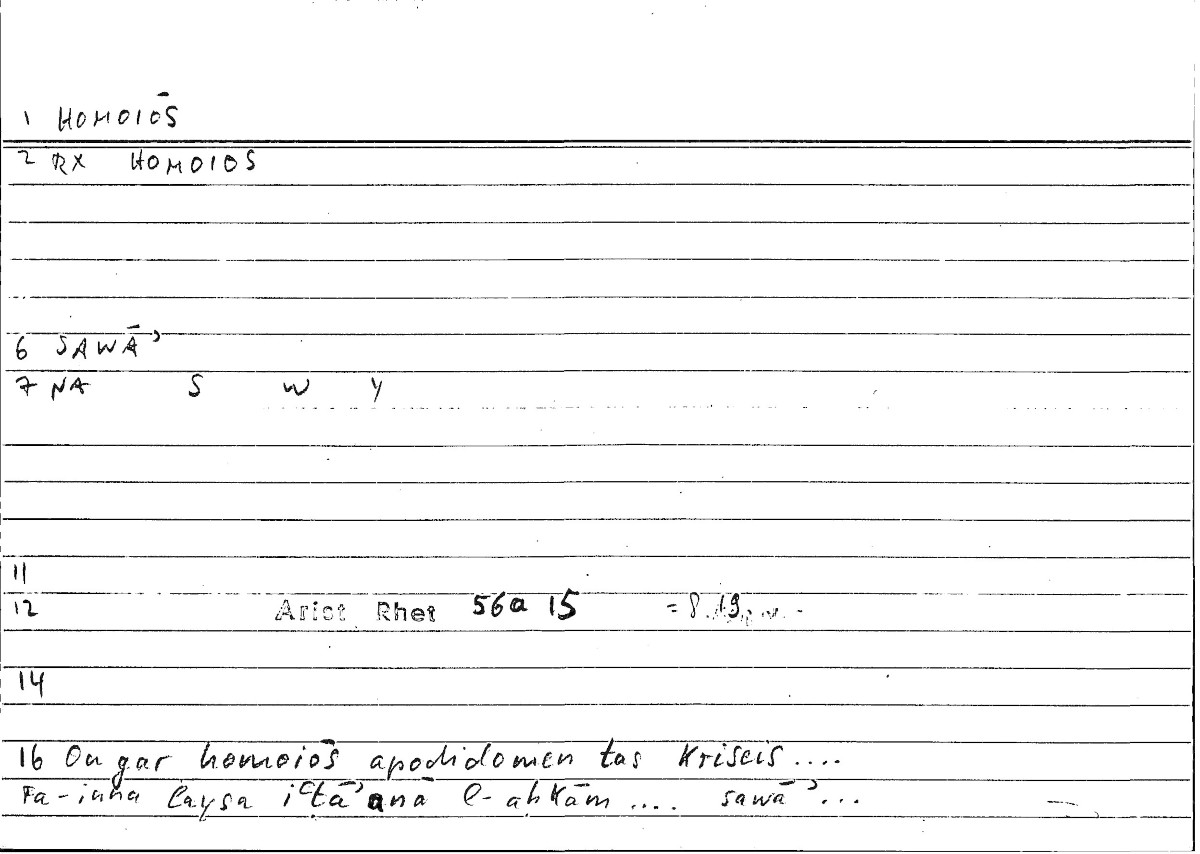 1 HOMOIŌS
2 RX HOMOIOS
6 SAWĀʾ
7 NA S W Y
11
12 Arist Rhet 56a 15
14
16 Ou gar homoiōs apodidomen tas Kriseis....
Fa-inna laysa iʿṭāʾanā l-aḥkām .... sawāʾ...